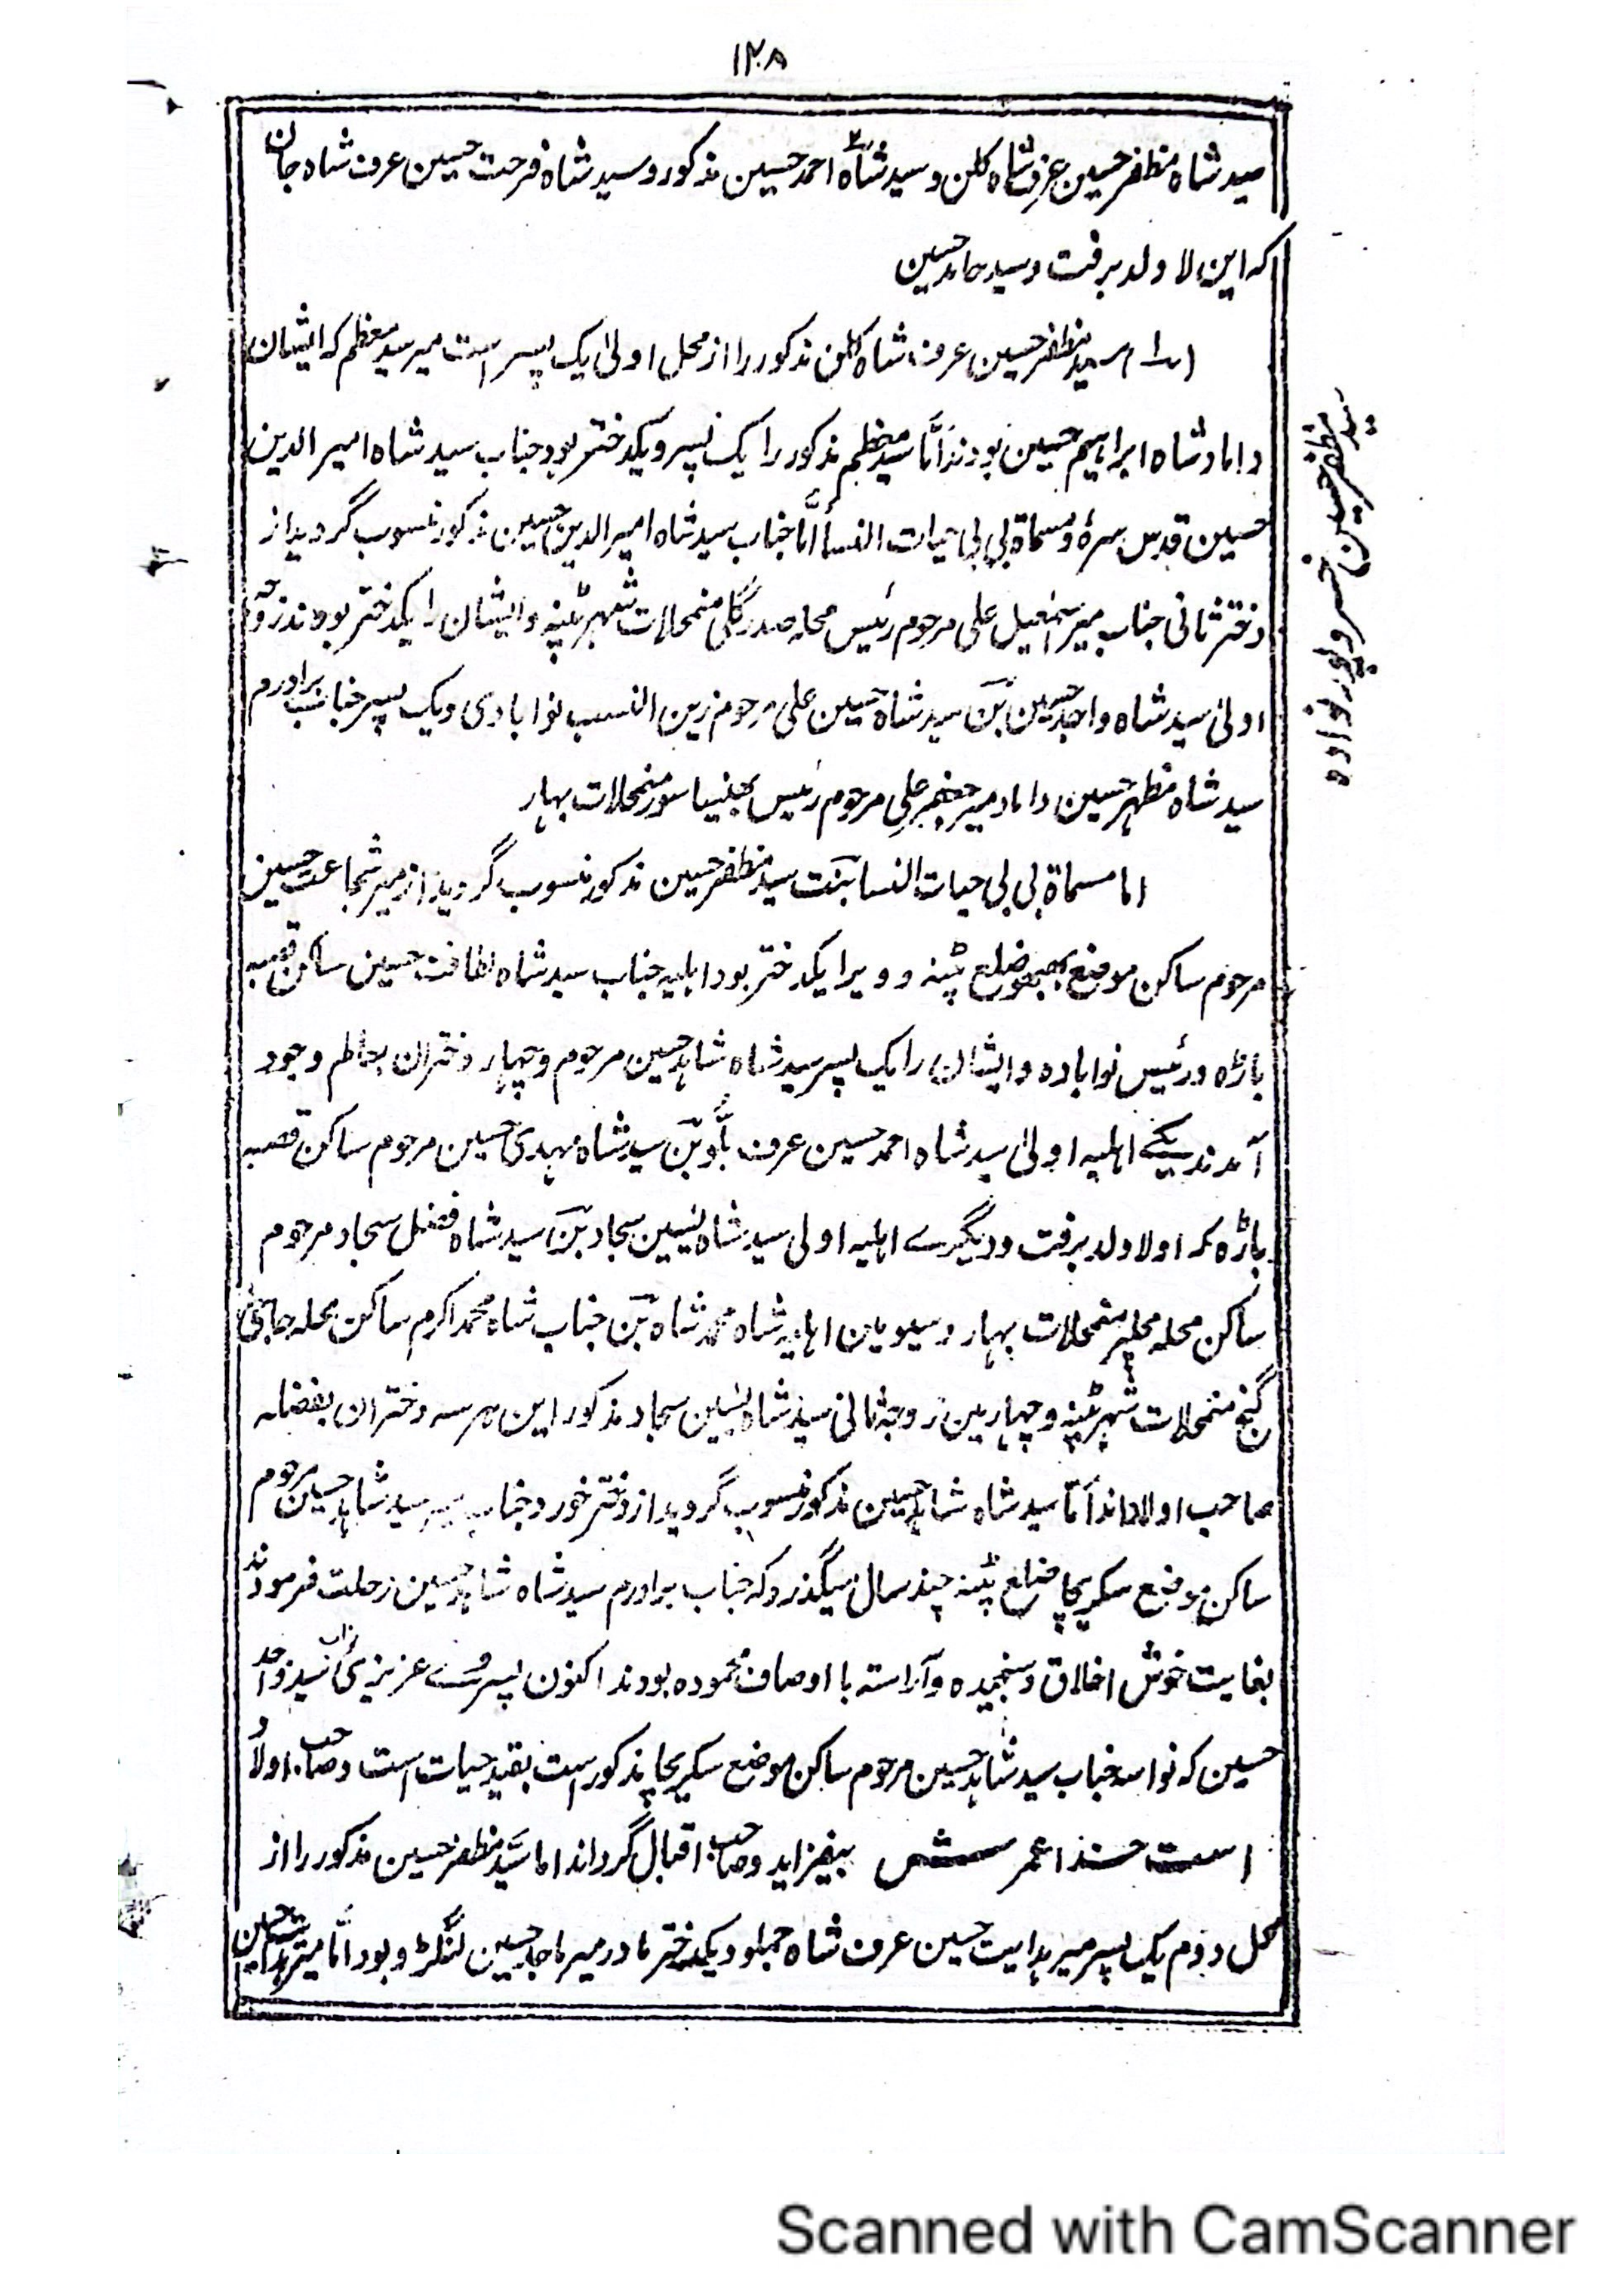 ۱۲۸
سید شاه مظفر حسین عرف شاه کلن و سید شاه احمد حسین مذکور و سید شاه فرحت حسین عرف شاه جان
که این لا ولد برفت و سید حامد حسین
سید مظفر حسین عرف شاه کلن مذکور را از محل اولیٰ یک پسر است میر سید معظم که ایشان
داماد شاه ابراہیم حسین بودند امّا سید معظم مذکور را یک پسر و یکدختر بود جناب سید شاه امیر الدین
حسین قدس سرہٗ و مسماة بی بی حیات النسا امّا جناب سید شاه امیر الدین حسین مذکور منسوب گردید از
دختر ثانی جناب میر اسمٰعیل علی مرحوم رئیس محلہ صدر گلی منمحلات شهر پٹنہ و ایشان را یکدختر بودند زوجہ
اولیٰ سید شاه واجد حسین بن سید شاه حسین علی مرحوم زین النسب نوابادی و یک پسر جناب برادرم
سید شاه مظہر حسین داماد میر جعفر علی مرحوم رئیس منمحلات بہار
اما مسماة بی بی حیات النسا بنت سید مظفر حسین مذکور منسوب گردید از میر شجاعت حسین
مرحوم ساکن موضع ضلع پٹنہ و ویرا یکدختر بود اہلیہ جناب سید شاه لطافت حسین ساکن قصبہ
باڑہ و رئیس نوابادہ و ایشان را یک پسر سید شاه شاہد حسین مرحوم و چہار دختران بعالم وجود
آمدند یکے اہلیہ اولیٰ سید شاه احمد حسین عرف بن سید شاه مہدی حسین مرحوم ساکن قصبہ
باڑہ کہ او لا ولد برفت و دیگرے اہلیہ اولی سید شاه یٰسین سجاد بن سید شاه فضل سجاد مرحوم
ساکن محلہ منمحلات بہار و سیومین اہلیہ شاه محمد شاه بن جناب شاه محمد اکرم ساکن محلہ حاجی
گنج منمحلات شهر پٹنہ و چہارمین زوجہ ثانی سید شاه یٰسین سجاد مذکور این ہر سہ دختران بفضلہ
صاحب اولاداند امّا سید شاه شاہد حسین مذکور منسوب گردید از دختر خورد جناب میر سید شاہد حسین مرحوم
ساکن موضع سکریچا ضلع پٹنہ چند سال میگذرد کہ جناب برادرم سید شاه شاہد حسین رحلت فرمودند
بغایت خوش اخلاق و سنجیدہ و آراستہ با اوصاف محمودہ بودند اکنون پسر وے عزیزی نواب سید واحد
حسین کہ نواسہ جناب سید شاہد حسین مرحوم ساکن موضع سکریچا مذکور است بقید حیات است و صاحب اولاد
است خدا عمرش بیفزاید و صاحب اقبال گرداند اما سید مظفر حسین مذکور را از
محل دوم یک پسر میر ہدایت حسین عرف شاه جملو و یکدختر مادر میر ماجد حسین لنگڑو بود امّا میر ہدایت حسین
سید مظفر حسین خسروپور نوادہ
Scanned with CamScanner